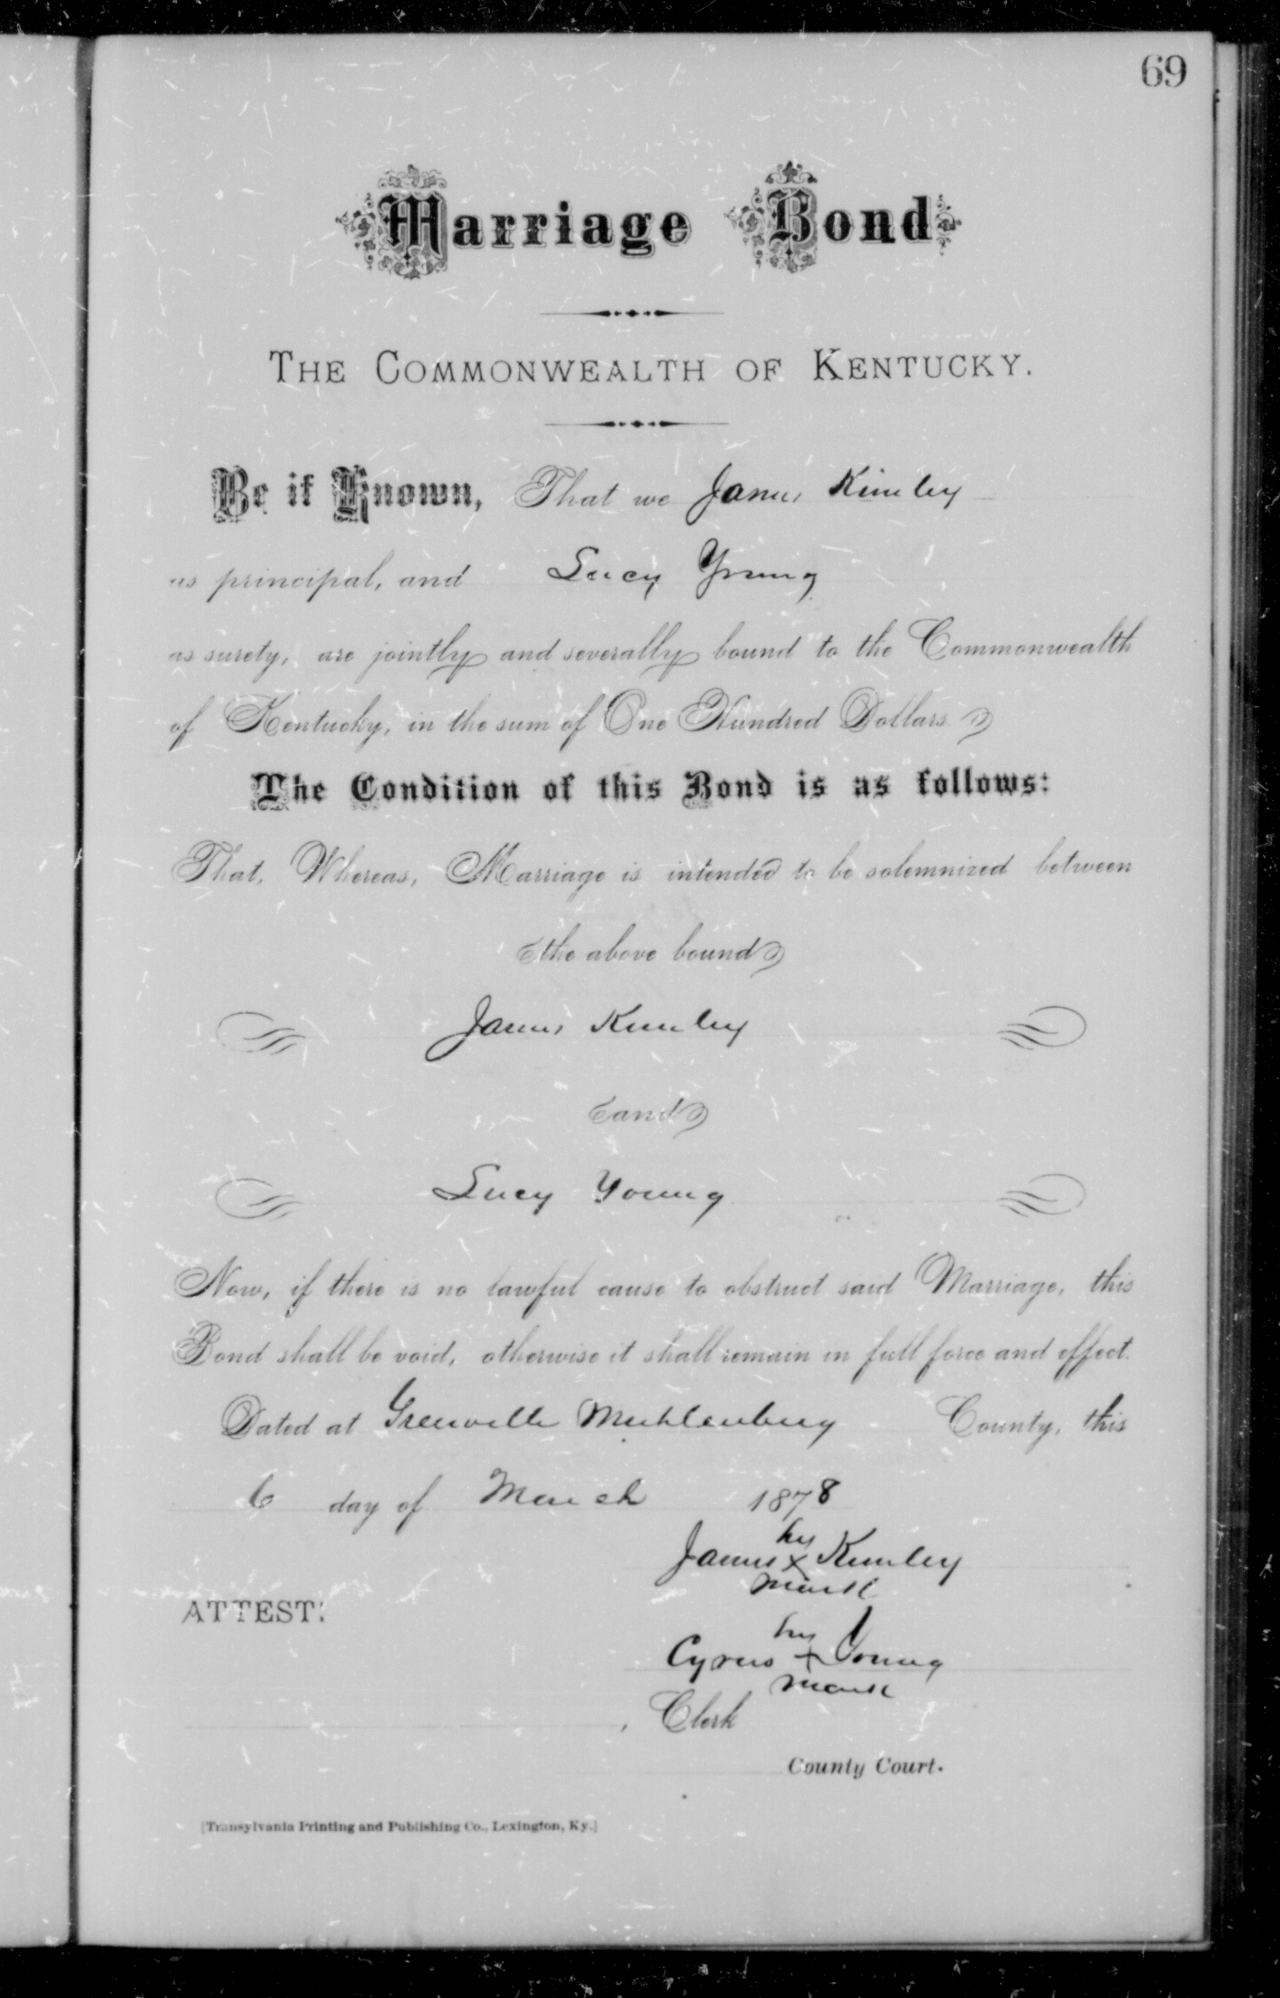 69
Marriage Bond
THE COMMONWEALTH OF KENTUCKY.
Be it Known, That we James Kimley
as principal, and Lucy Young
as surety, are jointly and severally bound to the Commonwealth
of Kentucky, in the sum of One Hundred Dollars.
The Condition of this Bond is as follows:
That, Whereas, Marriage is intended to be solemnized between
the above bound
James Kimley
and
Lucy Young
Now, if there is no lawful cause to obstruct said Marriage, this
Bond shall be void, otherwise it shall remain in full force and effect.
Dated at Greenville Muhlenburg County, this
6 day of March 1878
his
James x Kimley
mark
ATTEST:
his
Cyrus + Young
mark
, Clerk
County Court.
[Transylvania Printing and Publishing Co., Lexington, Ky.]